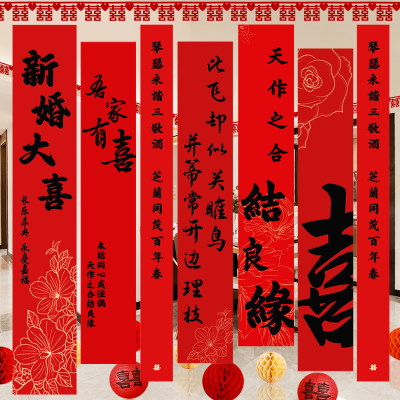 新婚大喜
长乐未央 永受嘉福
吾家
有喜
永结同心成佳偶
天作之合结良缘
琴瑟永諧三敬酒 芝蘭同茂百年春
比飞却似关雎鸟
并蒂常开边理技
天作之合
結良緣
囍
琴瑟永諧三敬酒 芝蘭同茂百年春
囍
囍